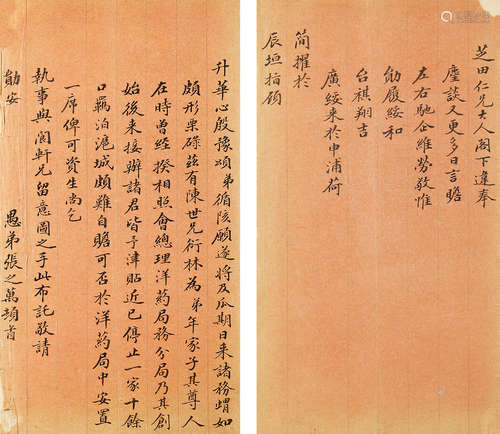 芝田仁兄大人閣下違奉
塵談又更多日言瞻
左右馳企維勞敬惟
勛履綏和
台祺翔吉
廣綏來於申浦荷
簡擢於
辰垣指顧
升華心殷豫頌弟循陔願遂將及瓜期日來諸務蝟如
頗形栗碌茲有陳世兄衍林為弟年家子其尊人
在時曾經揆相照會總理洋葯局務分局乃其創
始後來接辦諸君皆予津貼近已停止一家十餘
口羈泊滬城頗難自贍可否於洋葯局中安置
一席俾可資生尚乞
執事與閬軒兄留意圖之手此布託敬請
勛安 愚弟張之萬頓首